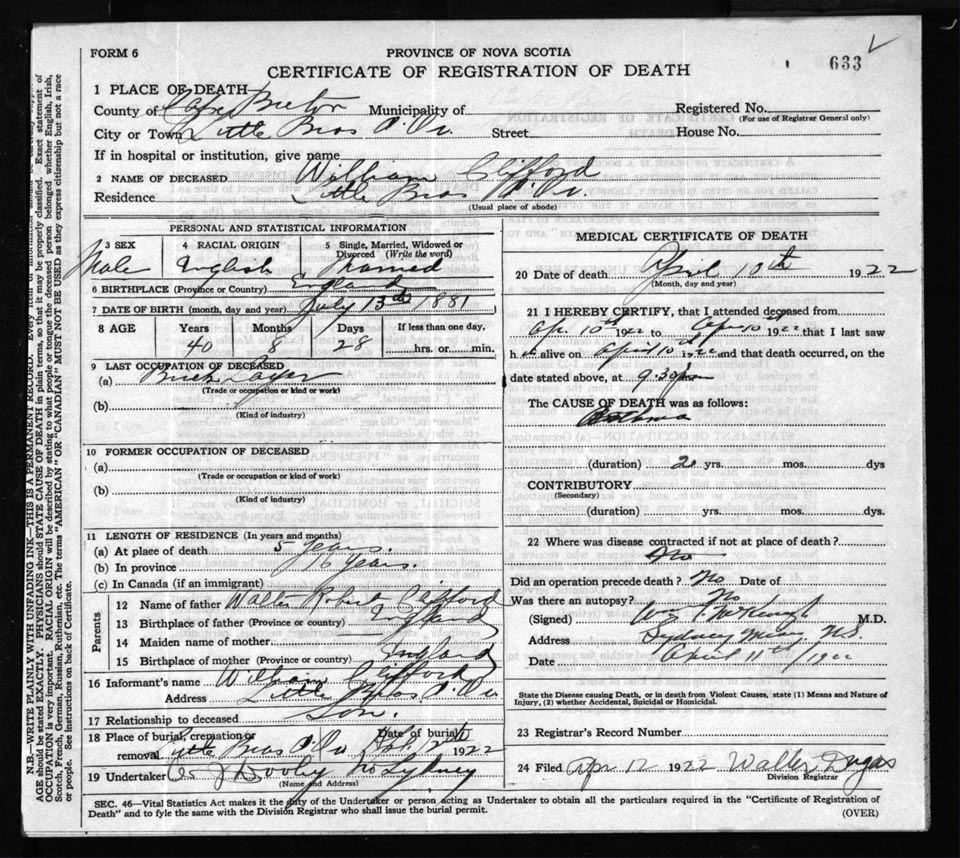 FORM 6
PROVINCE OF NOVA SCOTIA
CERTIFICATE OF REGISTRATION OF DEATH
633
1 PLACE OF DEATH
County of Cape Breton Municipality of
Registered No.
(For use of Registrar General only)
City or Town Little Bras d'Or Street House No.
If in hospital or institution, give name
2 NAME OF DECEASED William Clifford
Residence Little Bras d'Or
(Usual place of abode)
PERSONAL AND STATISTICAL INFORMATION
3 SEX
Male
4 RACIAL ORIGIN
English
5 Single, Married, Widowed or Divorced (Write the word)
Married
6 BIRTHPLACE (Province or Country) England
7 DATE OF BIRTH (month, day and year) July 13th 1881
8 AGE Years Months Days If less than one day,
40 8 28 hrs. or min.
9 LAST OCCUPATION OF DECEASED
(a) Brick Layer
(Trade or occupation or kind or work)
(b)
(Kind of industry)
10 FORMER OCCUPATION OF DECEASED
(a)
(Trade or occupation or kind of work)
(b)
(Kind of Industry)
11 LENGTH OF RESIDENCE (In years and months)
(a) At place of death 5 years.
(b) In province 16 years.
(c) In Canada (if an immigrant)
Parents
12 Name of father Walter Robert Clifford
13 Birthplace of father (Province or country) England
14 Maiden name of mother
15 Birthplace of mother (Province or country) England
16 Informant's name William Clifford
Address Little Bras d'Or
17 Relationship to deceased Son.
18 Place of burial, cremation or removal Little Bras d'Or
Date of burial 1922
19 Undertaker Dooley No Sydney
(Name and Address)
MEDICAL CERTIFICATE OF DEATH
20 Date of death April 10th 1922
(Month, day and year)
21 I HEREBY CERTIFY, that I attended deceased from
Apr 10th 1922 to April 10 1922 that I last saw
h alive on April 10 1922 and that death occurred, on the
date stated above, at 9.30
The CAUSE OF DEATH was as follows:
Asthma
(duration) 20 yrs. mos. dys
CONTRIBUTORY
(Secondary)
(duration) yrs. mos. dys
22 Where was disease contracted if not at place of death?
No
Did an operation precede death? No Date of
Was there an autopsy? No
(Signed) Wm M.D.
Address Sydney Mines N.S.
Date April 11th/1922
State the Disease causing Death, or in death from Violent Causes, state (1) Means and Nature of
Injury, (2) whether Accidental, Suicidal or Homicidal.
23 Registrar's Record Number
24 Filed Apr 12 1922 Walter Dugas
Division Registrar
SEC. 46—Vital Statistics Act makes it the duty of the Undertaker or person acting as Undertaker to obtain all the particulars required in the "Certificate of Registration of
Death" and to fyle the same with the Division Registrar who shall issue the burial permit.
(OVER)
N.B.—WRITE PLAINLY WITH UNFADING INK—THIS IS A PERMANENT RECORD. Every item of information
AGE should be stated EXACTLY. PHYSICIANS should STATE CAUSE OF DEATH in plain terms, so that it may be properly classified. Exact statement of
OCCUPATION is very important. RACIAL ORIGIN will be described by stating to what people or tongue the deceased person belonged whether English, Irish,
Scotch, French, German, Russian, Ruthenian, etc. The terms "AMERICAN" OR "CANADIAN" MUST NOT BE USED as they express citizenship but not a race
or people. See instructions on back of Certificate.